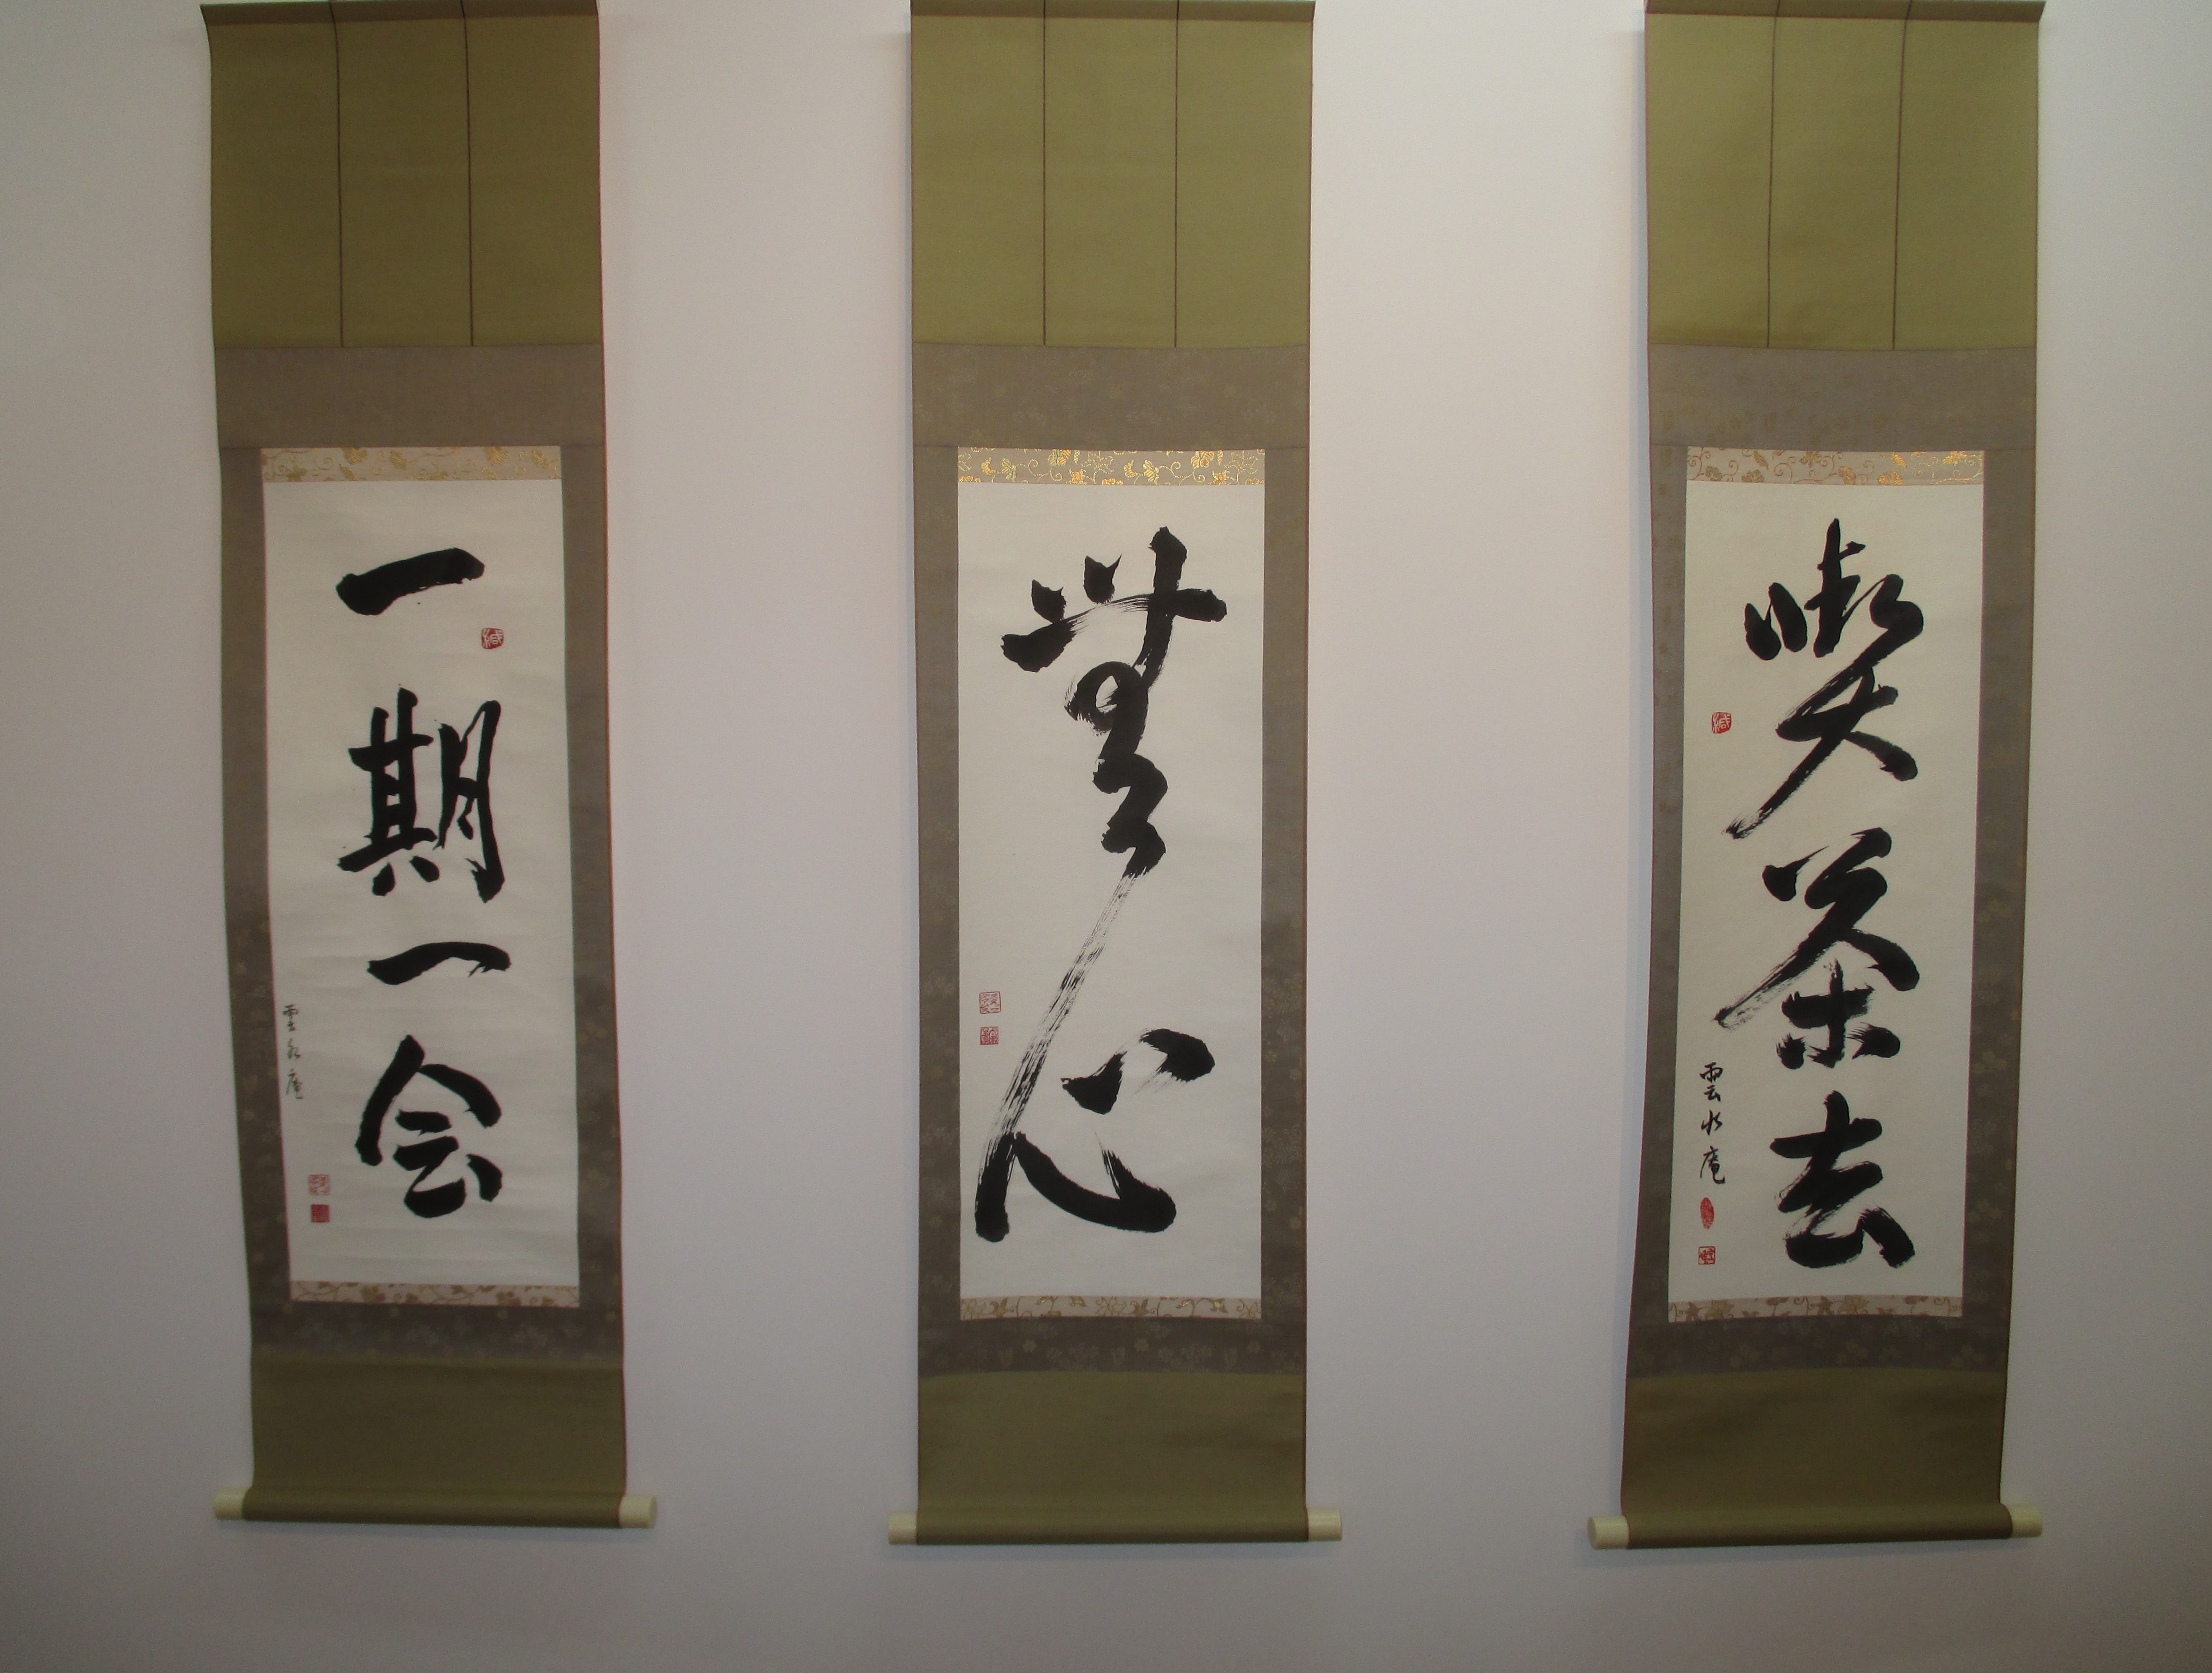 一期一会
雲水庵
無心
喫茶去
雲水庵